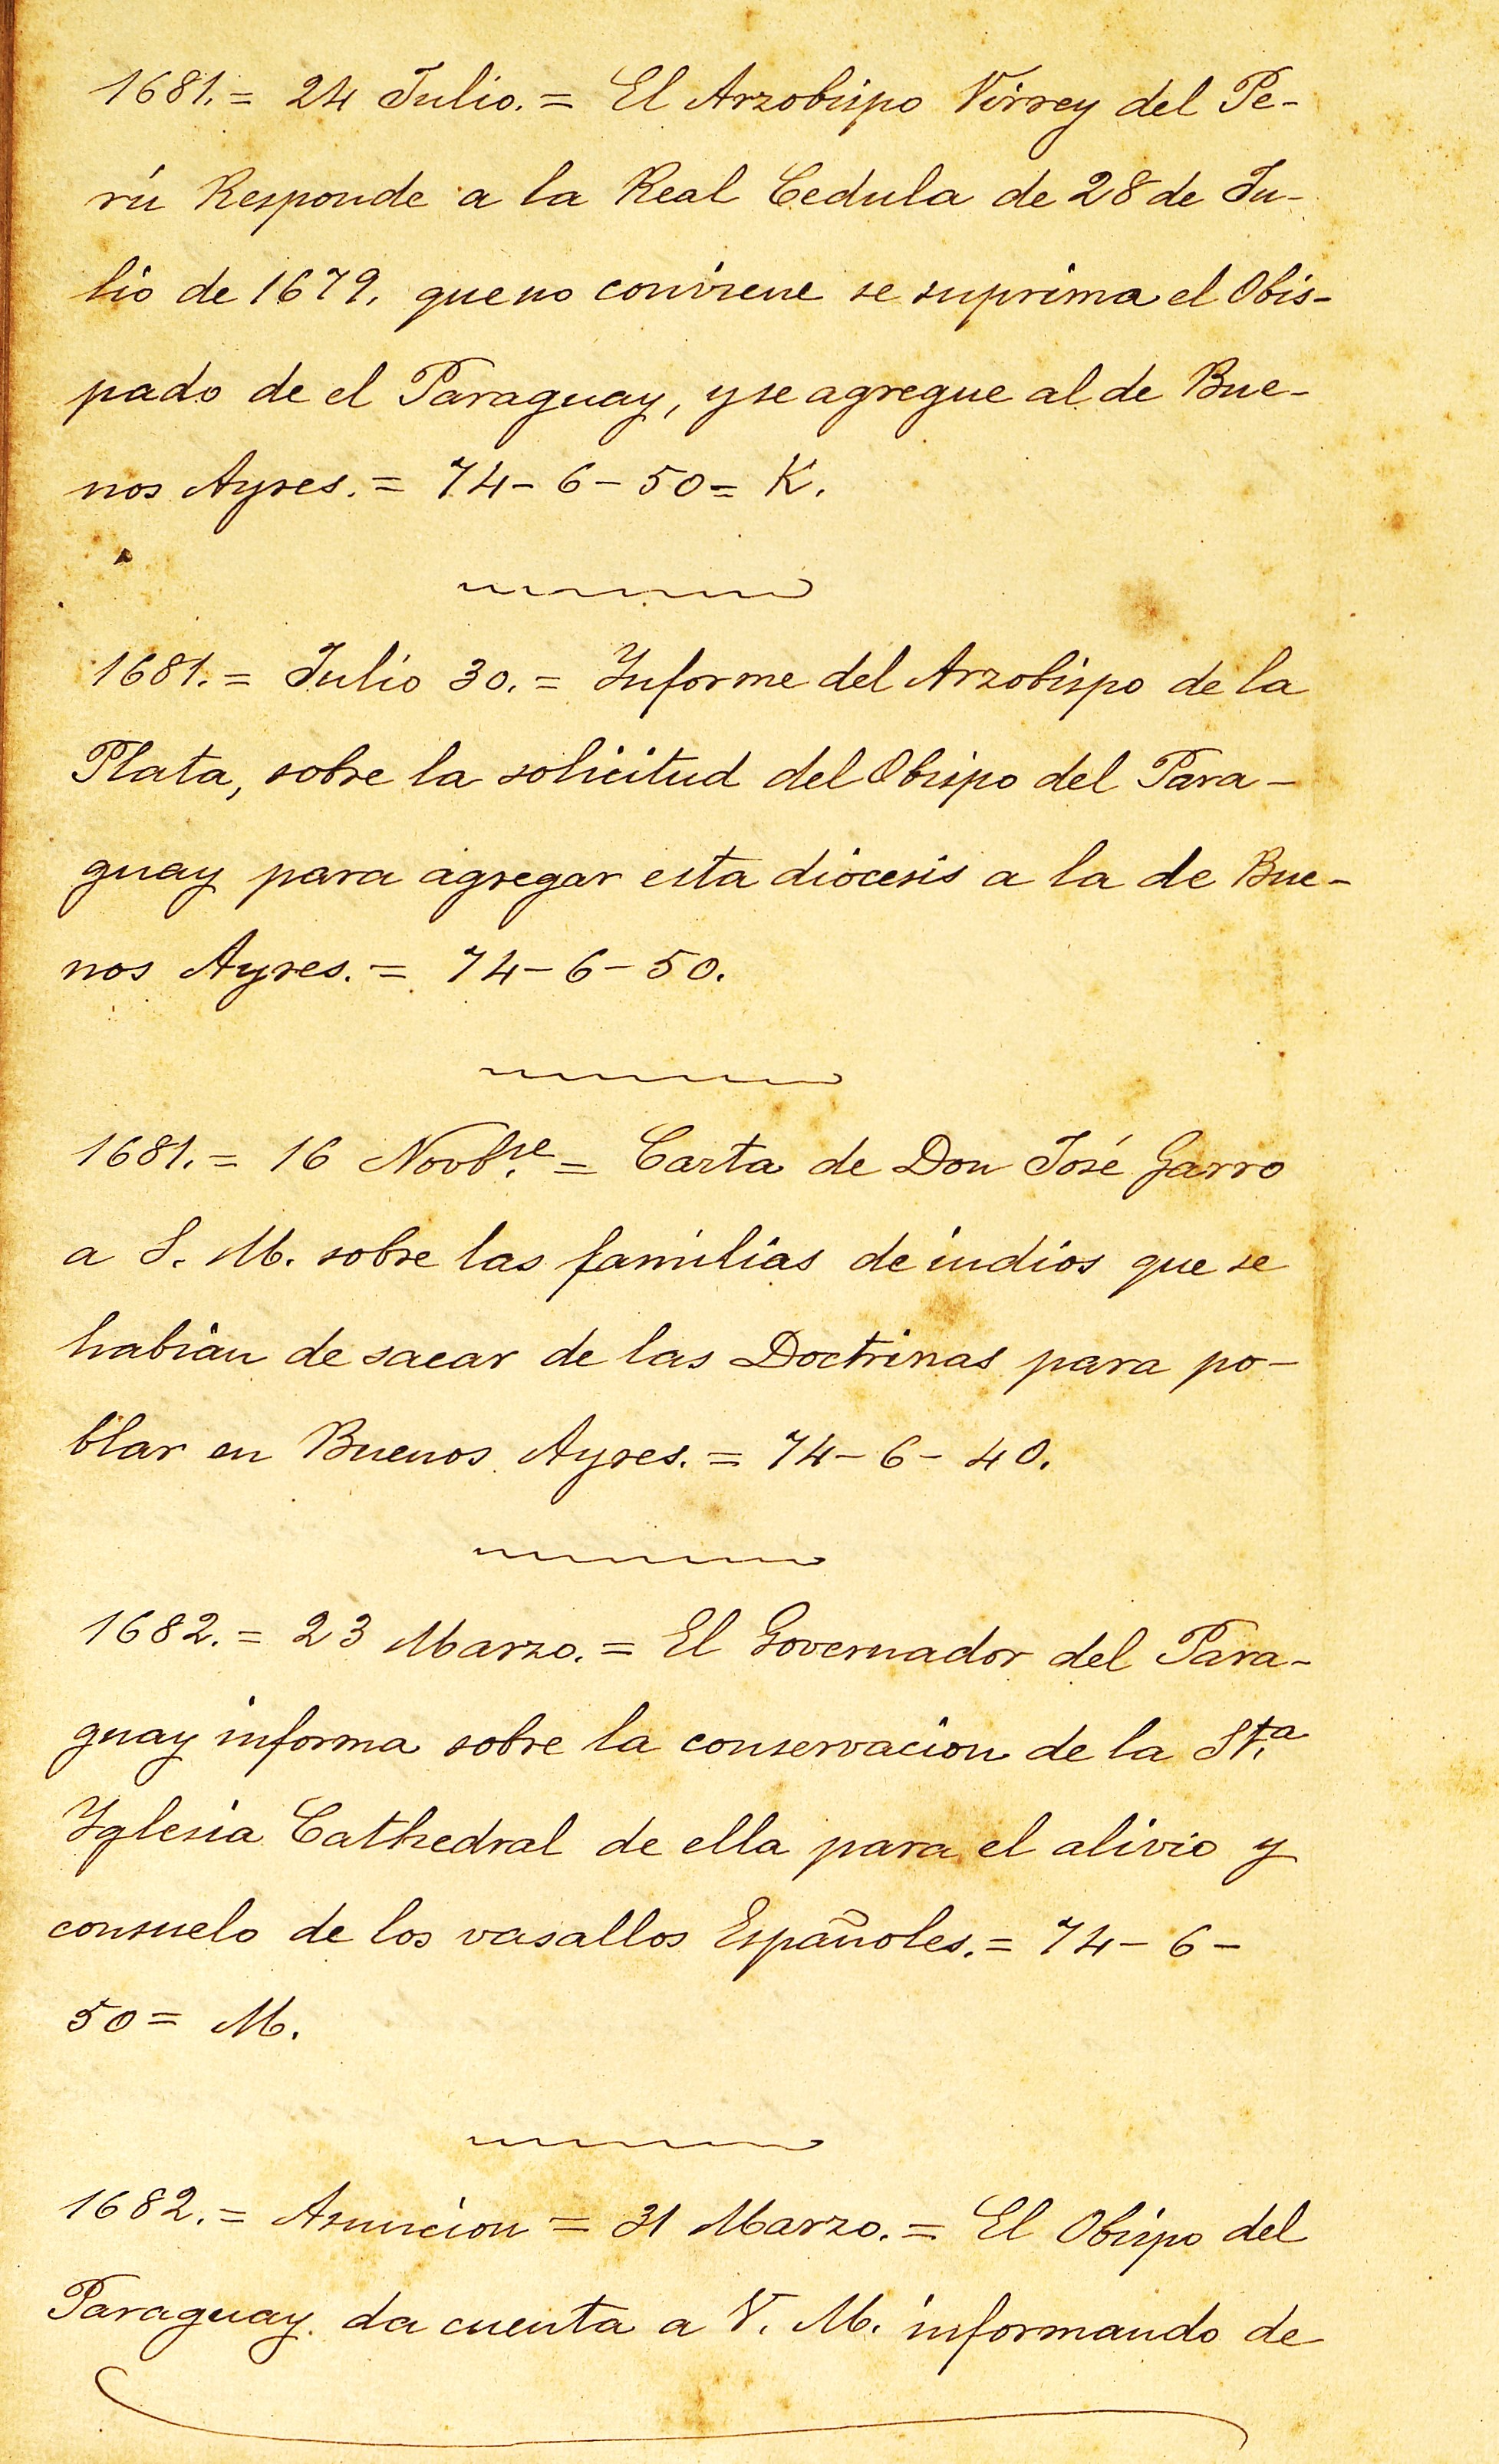 1681.= 24 Julio.= El Arzobispo Virrey del Pe-
rú Responde a la Real Cedula de 28 de Ju-
lio de 1679, que no conviene se suprima el Obis-
pado de el Paraguay, y se agregue al de Bue-
nos Ayres.= 74-6-50= K.
1681.= Julio 30.= Informe del Arzobispo de la
Plata, sobre la solicitud del Obispo del Para-
guay para agregar esta diocesis a la de Bue-
nos Ayres.= 74-6-50.
1681.= 16 Novbre.= Carta de Don José Garro
a S. M. sobre las familias de indios que se
habian de sacar de las Doctrinas para po-
blar en Buenos Ayres.= 74-6-40.
1682.= 23 Marzo.= El Governador del Para-
guay informa sobre la conservacion de la Sta.
Iglesia Cathedral de ella para el alivio y
consuelo de los vasallos Españoles.= 74-6-
50= M.
1682.= Asuncion= 31 Marzo.= El Obispo del
Paraguay da cuenta a V. M. informando de